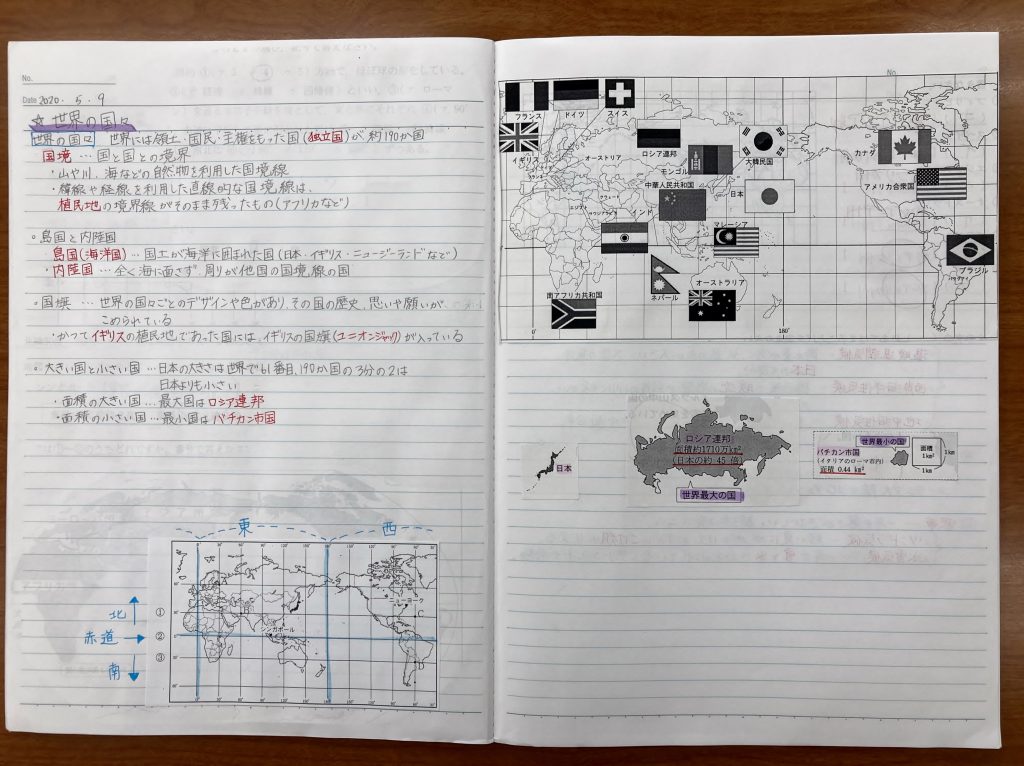 No.
Date 2020 . 5 . 9
☆ 世界の国々
世界の国々 世界には領土・国民・主権をもった国(独立国)が、約190か国
国境 … 国と国との境界
・山や川、海などの自然物を利用した国境線
・緯線や経線を利用した直線的な国境線は、
植民地の境界線がそのまま残ったもの(アフリカなど)
○島国と内陸国
・島国(海洋国) … 国土が海洋に囲まれた国(日本・イギリス・ニュージーランドなど)
・内陸国 … 全く海に面さず、周りが他国の国境線の国
○国旗 … 世界の国々ごとのデザインや色があり、その国の歴史、思いや願いが、
こめられている
・かつてイギリスの植民地であった国には、イギリスの国旗(ユニオンジャック)が入っている
○大きい国と小さい国 … 日本の大きさは世界で61番目、190か国の3分の2は
日本よりも小さい
・面積の大きい国 … 最大国はロシア連邦
・面積の小さい国 … 最小国はバチカン市国
東 西
北
赤道
南
①
②
③
ニューヨーク
シンガポール
No
フランス
ドイツ
スイス
イギリス
オーストリア
ロシア連邦
モンゴル
大韓民国
中華人民共和国
日本
インド
マレーシア
ネパール
オーストラリア
南アフリカ共和国
カナダ
アメリカ合衆国
ブラジル
0°
180°
日本
ロシア連邦
面積約1710万km²
(日本の約 45 倍)
世界最大の国
世界最小の国
バチカン市国
(イタリアのローマ市内)
面積 0.44 km²
面積
1km²
1km
1km